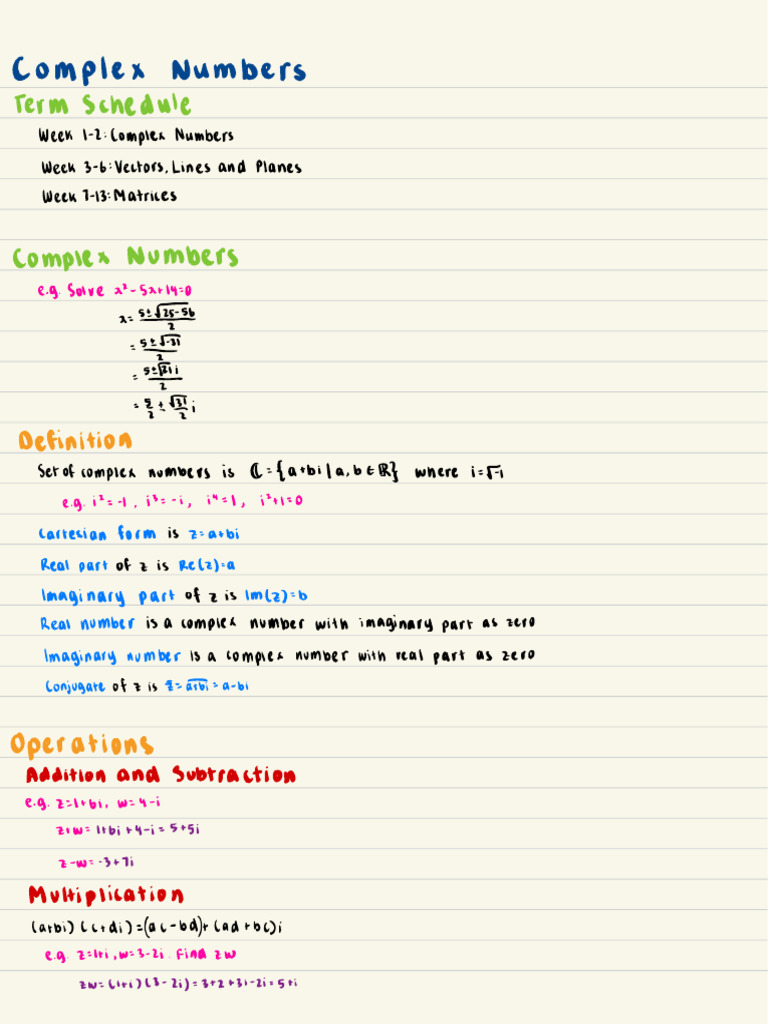 Complex Numbers
Term Schedule
Week 1-2: Complex Numbers
Week 3-6: Vectors, Lines and Planes
Week 7-13: Matrices
Complex Numbers
e.g. Solve x²-5x+14=0
x= (5±√(25-56))/2
= (5±√-31)/2
= (5±√31 i)/2
= 5/2 ± √31/2 i
Definition
Set of complex numbers is ℂ={a+bi|a,b∈ℝ} where i=√-1
e.g. i²=-1, i³=-i, i⁴=1, i²+1=0
Cartesian form is z=a+bi
Real part of z is Re(z)=a
Imaginary part of z is Im(z)=b
Real number is a complex number with imaginary part as zero
Imaginary number is a complex number with real part as zero
Conjugate of z is z̄=a+bi̅=a-bi
Operations
Addition and Subtraction
e.g. z=1+6i, w=4-i
z+w=1+6i+4-i=5+5i
z-w=-3+7i
Multiplication
(a+bi)(c+di)=(ac-bd)+(ad+bc)i
e.g. z=1+i, w=3-2i. Find zw
zw=(1+i)(3-2i)=3+2+3i-2i=5+i